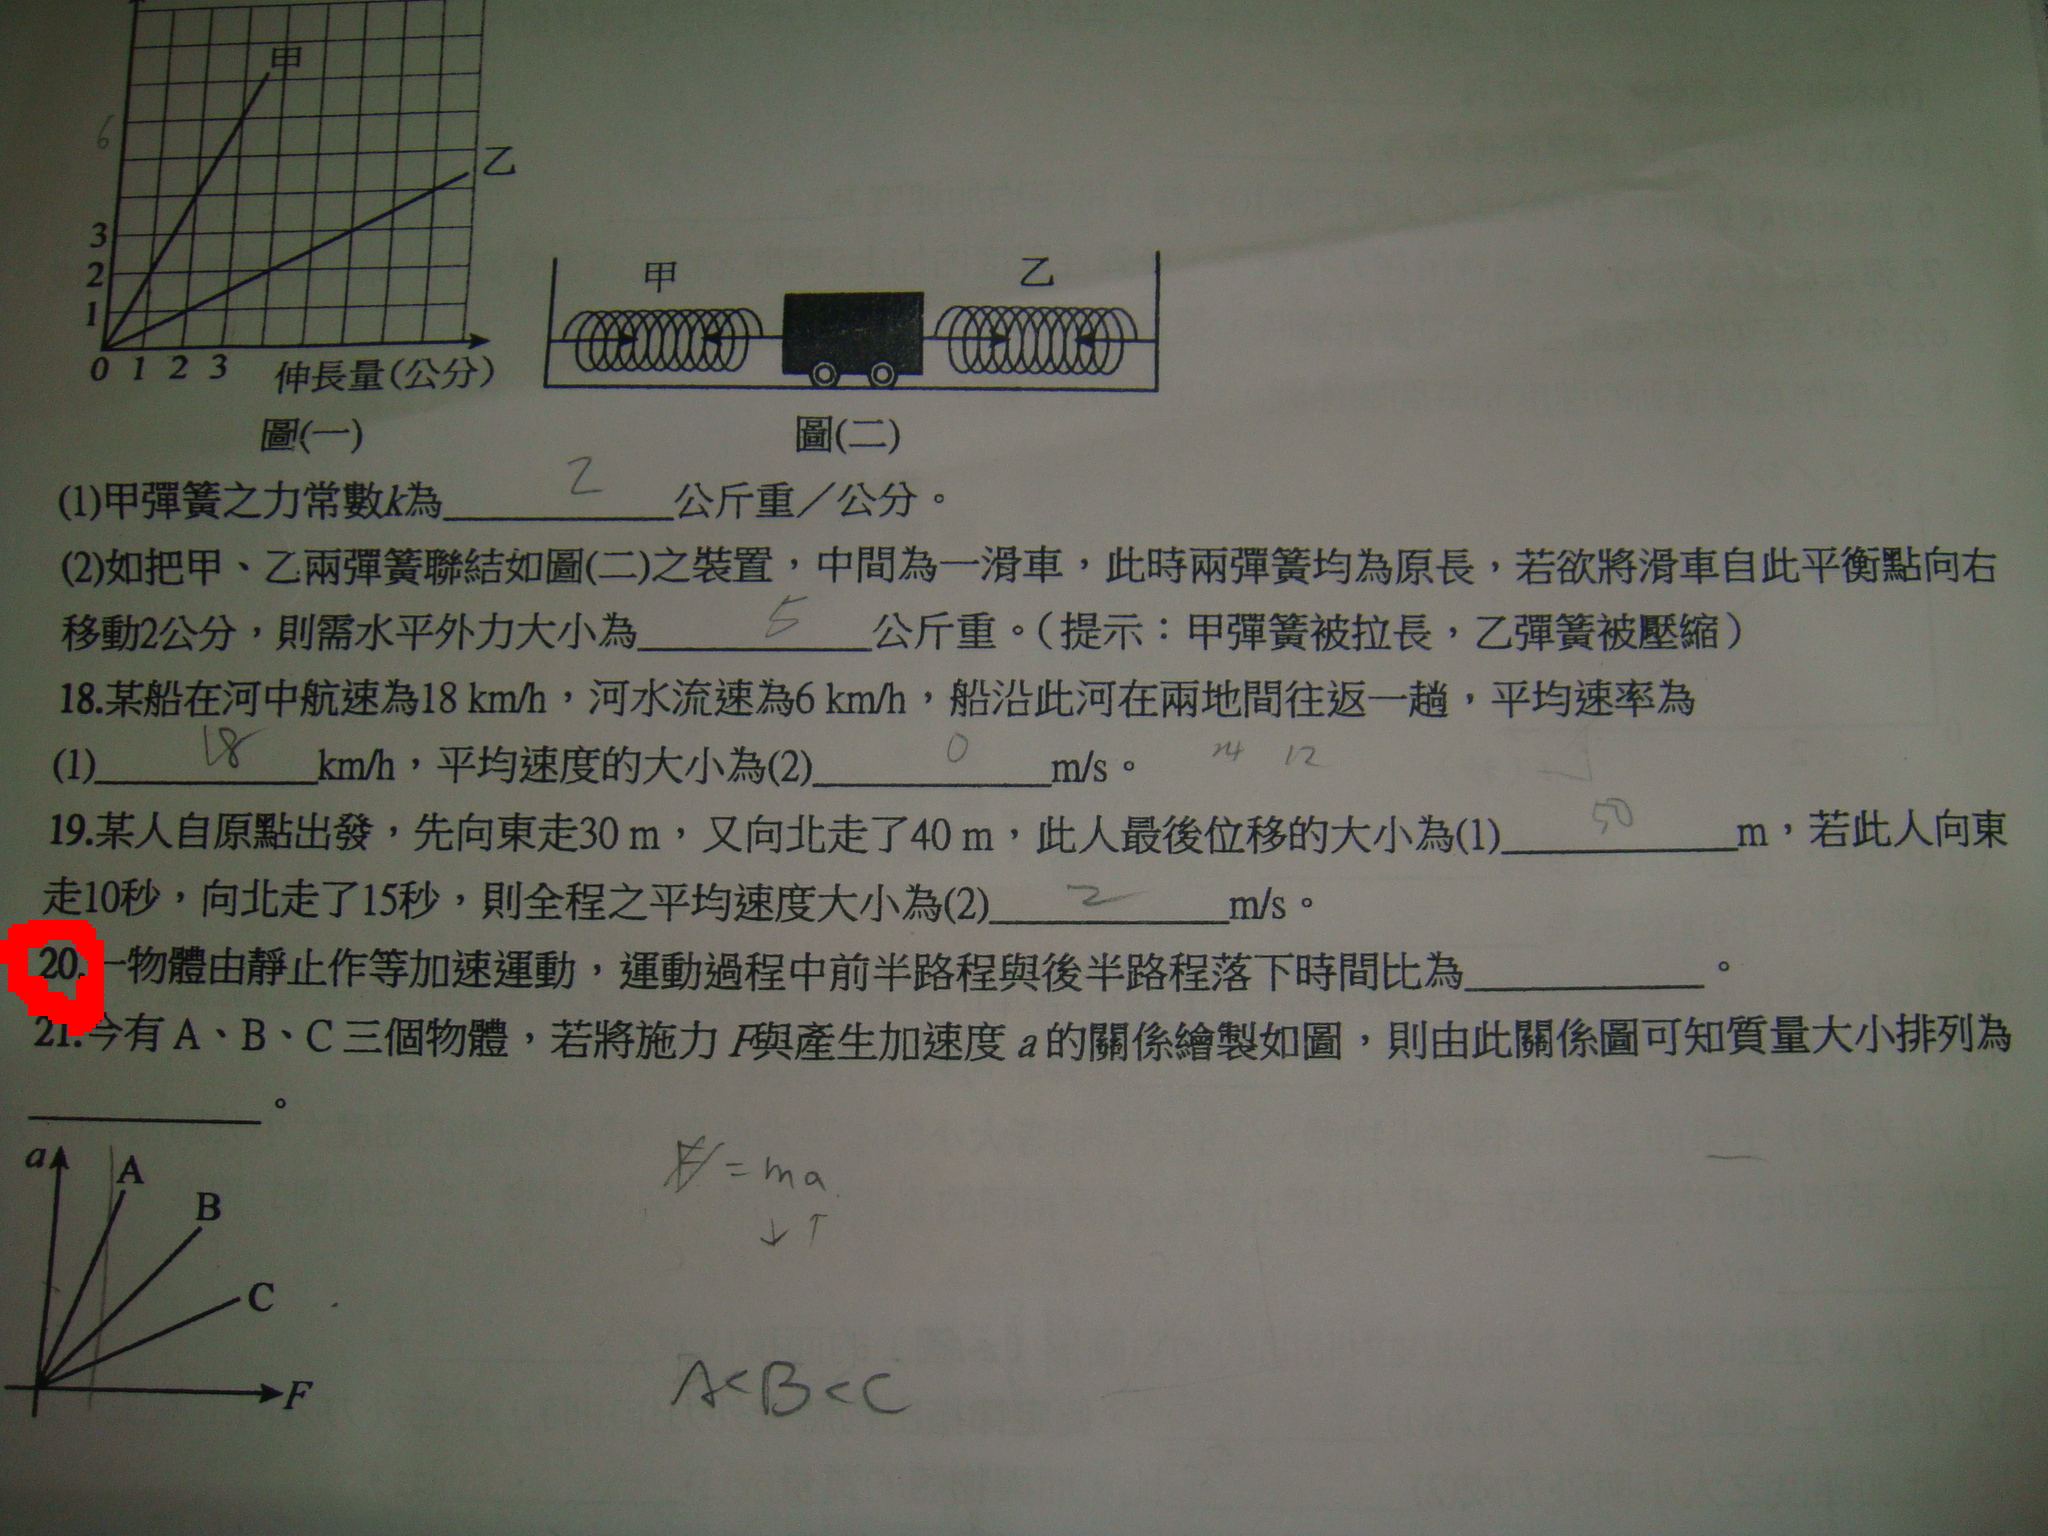 甲
6
乙
3
2
1
0 1 2 3 伸長量(公分)
甲 乙
圖(一) 圖(二)
(1)甲彈簧之力常數k為 2 公斤重／公分。
(2)如把甲、乙兩彈簧聯結如圖(二)之裝置，中間為一滑車，此時兩彈簧均為原長，若欲將滑車自此平衡點向右
移動2公分，則需水平外力大小為 5 公斤重。（提示：甲彈簧被拉長，乙彈簧被壓縮）
18.某船在河中航速為18 km/h，河水流速為6 km/h，船沿此河在兩地間往返一趟，平均速率為
(1) 18 km/h，平均速度的大小為(2) 0 m/s。 24 12
19.某人自原點出發，先向東走30 m，又向北走了40 m，此人最後位移的大小為(1) 50 m，若此人向東
走10秒，向北走了15秒，則全程之平均速度大小為(2) 2 m/s。
20.一物體由靜止作等加速運動，運動過程中前半路程與後半路程落下時間比為 。
21.今有 A、B、C 三個物體，若將施力 F與產生加速度 a 的關係繪製如圖，則由此關係圖可知質量大小排列為
。
a
A
B
C
F
F = ma
↓ ↑
A<B<C